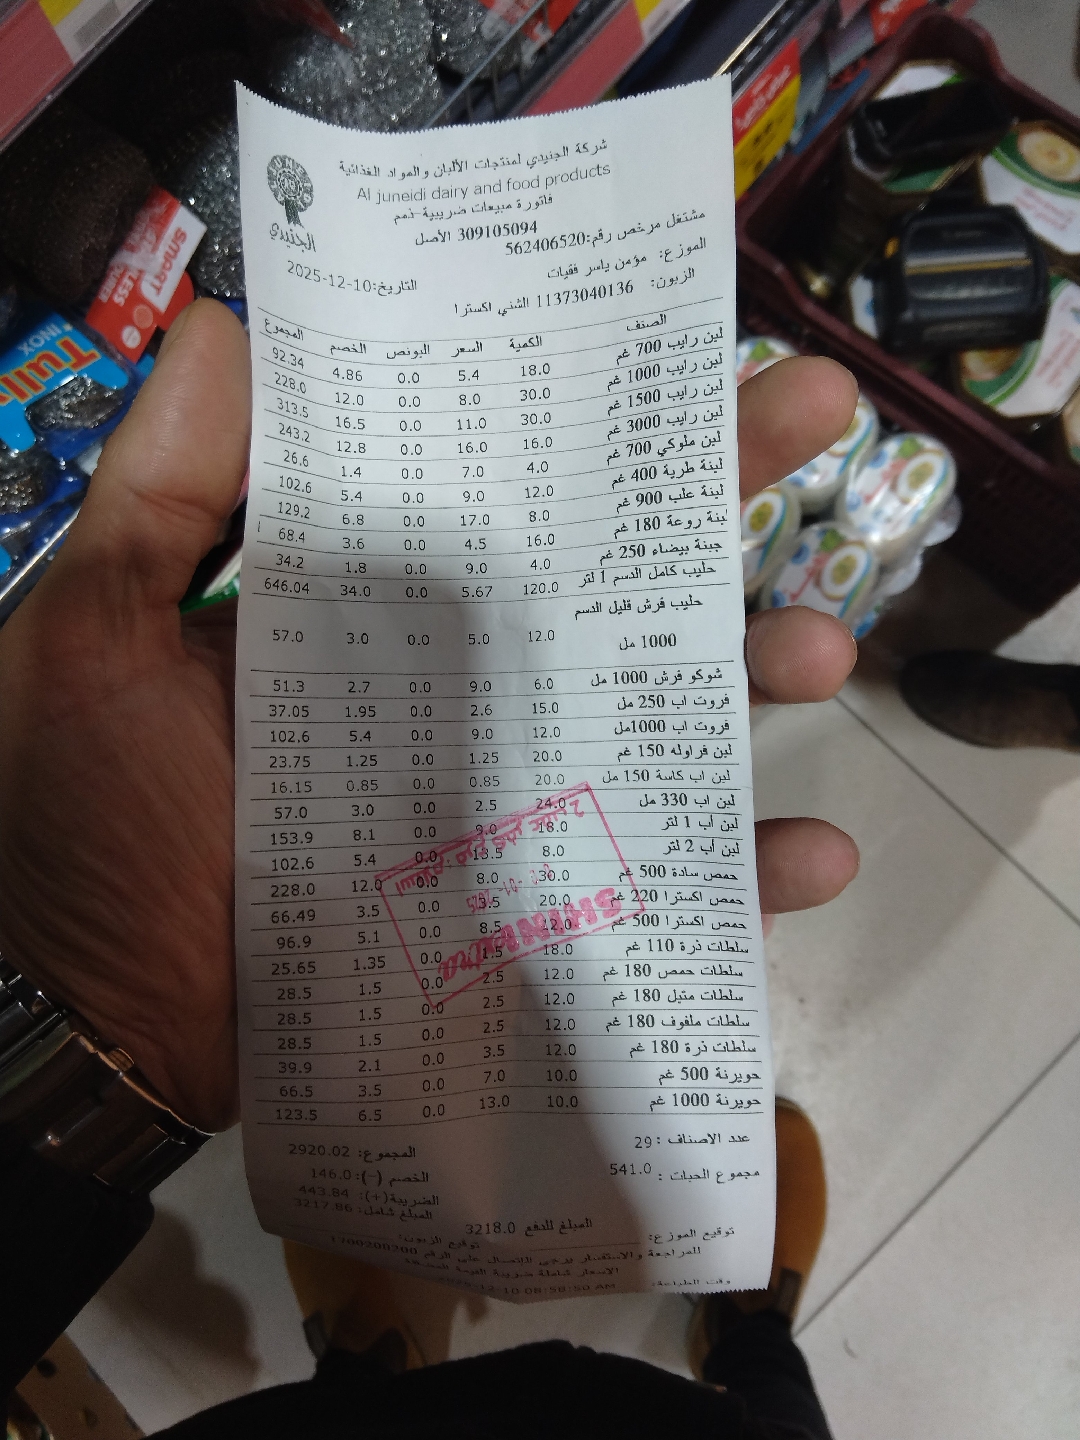 شركة الجنيدي لمنتجات الألبان والمواد الغذائية
Al juneidi dairy and food products
الجنيدي
فاتورة مبيعات ضريبية-ذمم
309105094 الأصل
مشتغل مرخص رقم:562406520
الموزع: مؤمن ياسر فقيات
التاريخ:2025-12-10
الزبون: 11373040136 الشني اكسترا
الصنف الكمية السعر البونص الخصم المجموع
لبن رايب 700 غم 18.0 5.4 0.0 4.86 92.34
لبن رايب 1000 غم 30.0 8.0 0.0 12.0 228.0
لبن رايب 1500 غم 30.0 11.0 0.0 16.5 313.5
لبن رايب 3000 غم 16.0 16.0 0.0 12.8 243.2
لبن ملوكي 700 غم 4.0 7.0 0.0 1.4 26.6
لبنة طرية 400 غم 12.0 9.0 0.0 5.4 102.6
لبنة علب 900 غم 8.0 17.0 0.0 6.8 129.2
لبنة روعة 180 غم 16.0 4.5 0.0 3.6 68.4
جبنة بيضاء 250 غم 4.0 9.0 0.0 1.8 34.2
حليب كامل الدسم 1 لتر 120.0 5.67 0.0 34.0 646.04
حليب فرش قليل الدسم
1000 مل 12.0 5.0 0.0 3.0 57.0
شوكو فرش 1000 مل 6.0 9.0 0.0 2.7 51.3
فروت اب 250 مل 15.0 2.6 0.0 1.95 37.05
فروت اب 1000مل 12.0 9.0 0.0 5.4 102.6
لبن فراوله 150 غم 20.0 1.25 0.0 1.25 23.75
لبن اب كاسة 150 مل 20.0 0.85 0.0 0.85 16.15
لبن اب 330 مل 24.0 2.5 0.0 3.0 57.0
لبن أب 1 لتر 18.0 9.0 0.0 8.1 153.9
لبن أب 2 لتر 8.0 13.5 0.0 5.4 102.6
حمص سادة 500 غم 30.0 8.0 0.0 12.0 228.0
حمص اكسترا 220 غم 20.0 3.5 0.0 3.5 66.49
حمص اكسترا 500 غم 12.0 8.5 0.0 5.1 96.9
سلطات ذرة 110 غم 18.0 1.5 0.0 1.35 25.65
سلطات حمص 180 غم 12.0 2.5 0.0 1.5 28.5
سلطات متبل 180 غم 12.0 2.5 0.0 1.5 28.5
سلطات ملفوف 180 غم 12.0 2.5 0.0 1.5 28.5
سلطات ذرة 180 غم 12.0 3.5 0.0 2.1 39.9
حويرنة 500 غم 10.0 7.0 0.0 3.5 66.5
حويرنة 1000 غم 10.0 13.0 0.0 6.5 123.5
عدد الاصناف :29
المجموع: 2920.02
مجموع الحبات : 541.0
الخصم (-):146.0
الضريبة(+): 443.84
المبلغ شامل: 3217.86
المبلغ للدفع 3218.0
توقيع الموزع:
توقيع الزبون:
للمراجعة والاستفسار يرجى الاتصال على الرقم 1700200200
الاسعار شاملة ضريبة القيمة
وقت الطباعة: 08:58:50 AM
SHINI extra
INOX
Tulli
SMART